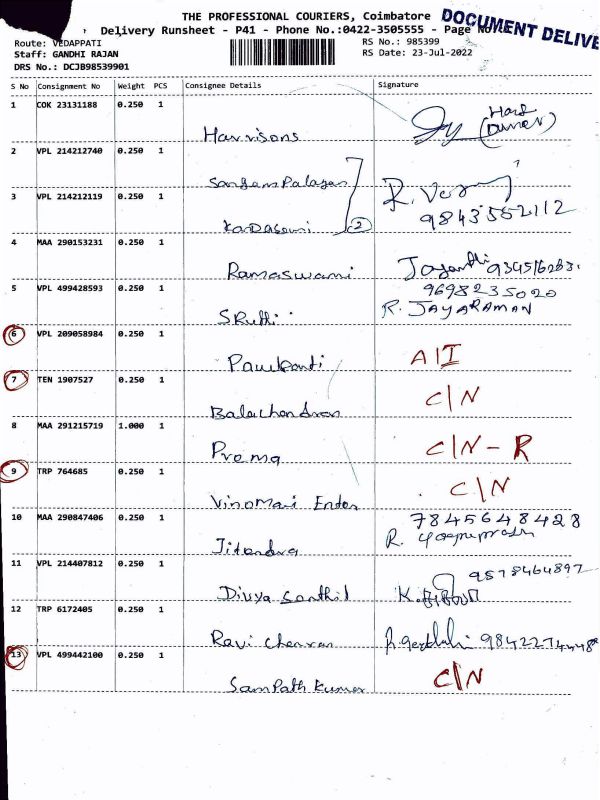 THE PROFESSIONAL COURIERS, Coimbatore
DOCUMENT DELIVE
Delivery Runsheet - P41 - Phone No.:0422-3505555 - Page No
Route: VEDAPPATI
RS No.: 985399
Staff: GANDHI RAJAN
RS Date: 23-Jul-2022
DRS No.: DCJB98539901
S No Consignment No Weight PCS Consignee Details Signature
1 COK 23131188 0.250 1
Harrisons (Owner)
2 VPL 214212740 0.250 1
3 VPL 214212119 0.250 1
2 9843552112
4 MAA 290153231 0.250 1
Ramaswami
5 VPL 499428593 0.250 1
9698235020
SRuthi R. JAYARAMAN
6 VPL 209058984 0.250 1
A/I
7 TEN 1907527 0.250 1
Balachandran C/N
8 MAA 291215719 1.000 1
Prema C/N - R
9 TRP 764685 0.250 1
C/N
10 MAA 290847406 0.250 1
7845648428
Jitendra R.
11 VPL 214407812 0.250 1
9578464897
Divya Senthil K.
12 TRP 6172405 0.250 1
Ravi
13 VPL 499442100 0.250 1
SamPath Kumar C/N